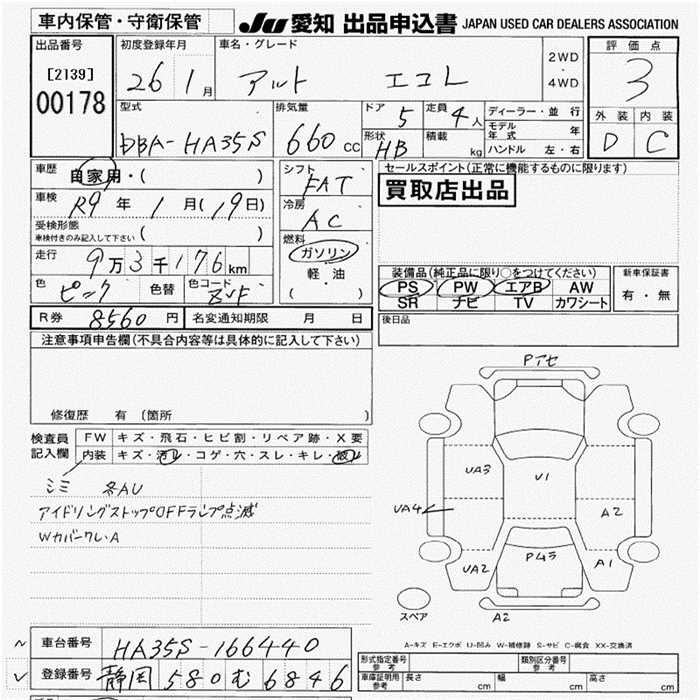 車内保管・守衛保管
JU 愛知 出品申込書 JAPAN USED CAR DEALERS ASSOCIATION
出品番号
[2139]
00178
初度登録年月
26 1月
車名・グレード
アルト エコL
2WD
・
4WD
評価点
3
外装 内装
D C
型式
DBA-HA35S
排気量
660 cc
ドア 5
定員 4人
形状 HB
積載 kg
ディーラー・並行
モデル年式 年
ハンドル 左・右
車歴
自家用・( )
車検
R9年 1月(19日)
受検形態
車検付きのみ記入して下さい ( )
走行
9万3千176km
色 ピンク 色替 色コード ZVF
シフト
FAT
冷房
AC
燃料
ガソリン
軽油
( )
セールスポイント(正常に機能するものに限ります)
買取店出品
装備品(純正品に限り○をつけてください)
PS PW エアB AW
SR ナビ TV カワシート
新車保証書
有・無
R券 8560円 名変通知期限 月 日
後日品
注意事項申告欄(不具合内容等は具体的に記入して下さい)
修復歴 有 (箇所
検査員記入欄
FW キズ・飛石・ヒビ割・リペア跡・X要
内装 キズ・汚レ・コゲ・穴・スレ・キレ・破レ
シミ 各AU
アイドリングストップOFFランプ点滅
WカバークレA
Pアセ
UA3
U1
UA4
A2
UA2
P43
A1
スペア
A2
A-キズ E-エクボ U-凹み W-補修跡 S-サビ C-腐食 XX-交換済
車台番号 HA35S-166440
登録番号 静岡 580 む 6846
形式指定番号 参考
類別区分番号 参考
車庫証明用 参考 長さ cm 幅 cm 高さ cm